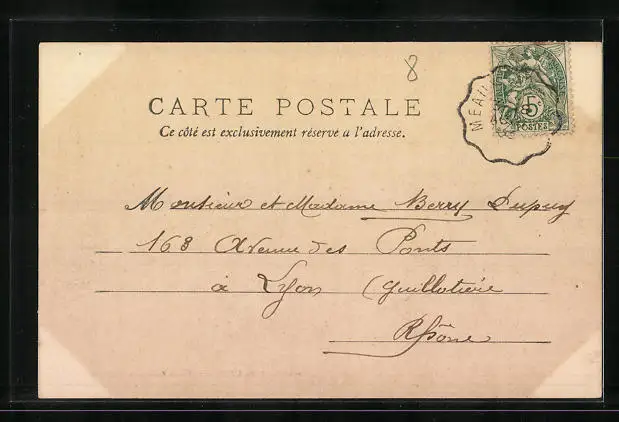 8
CARTE POSTALE
Ce côté est exclusivement réservé a l'adresse.
5c
POSTES
Monsieur et Madame Berry Dupuy
168 Avenue des Ponts
à Lyon (Guillotière
Rhône